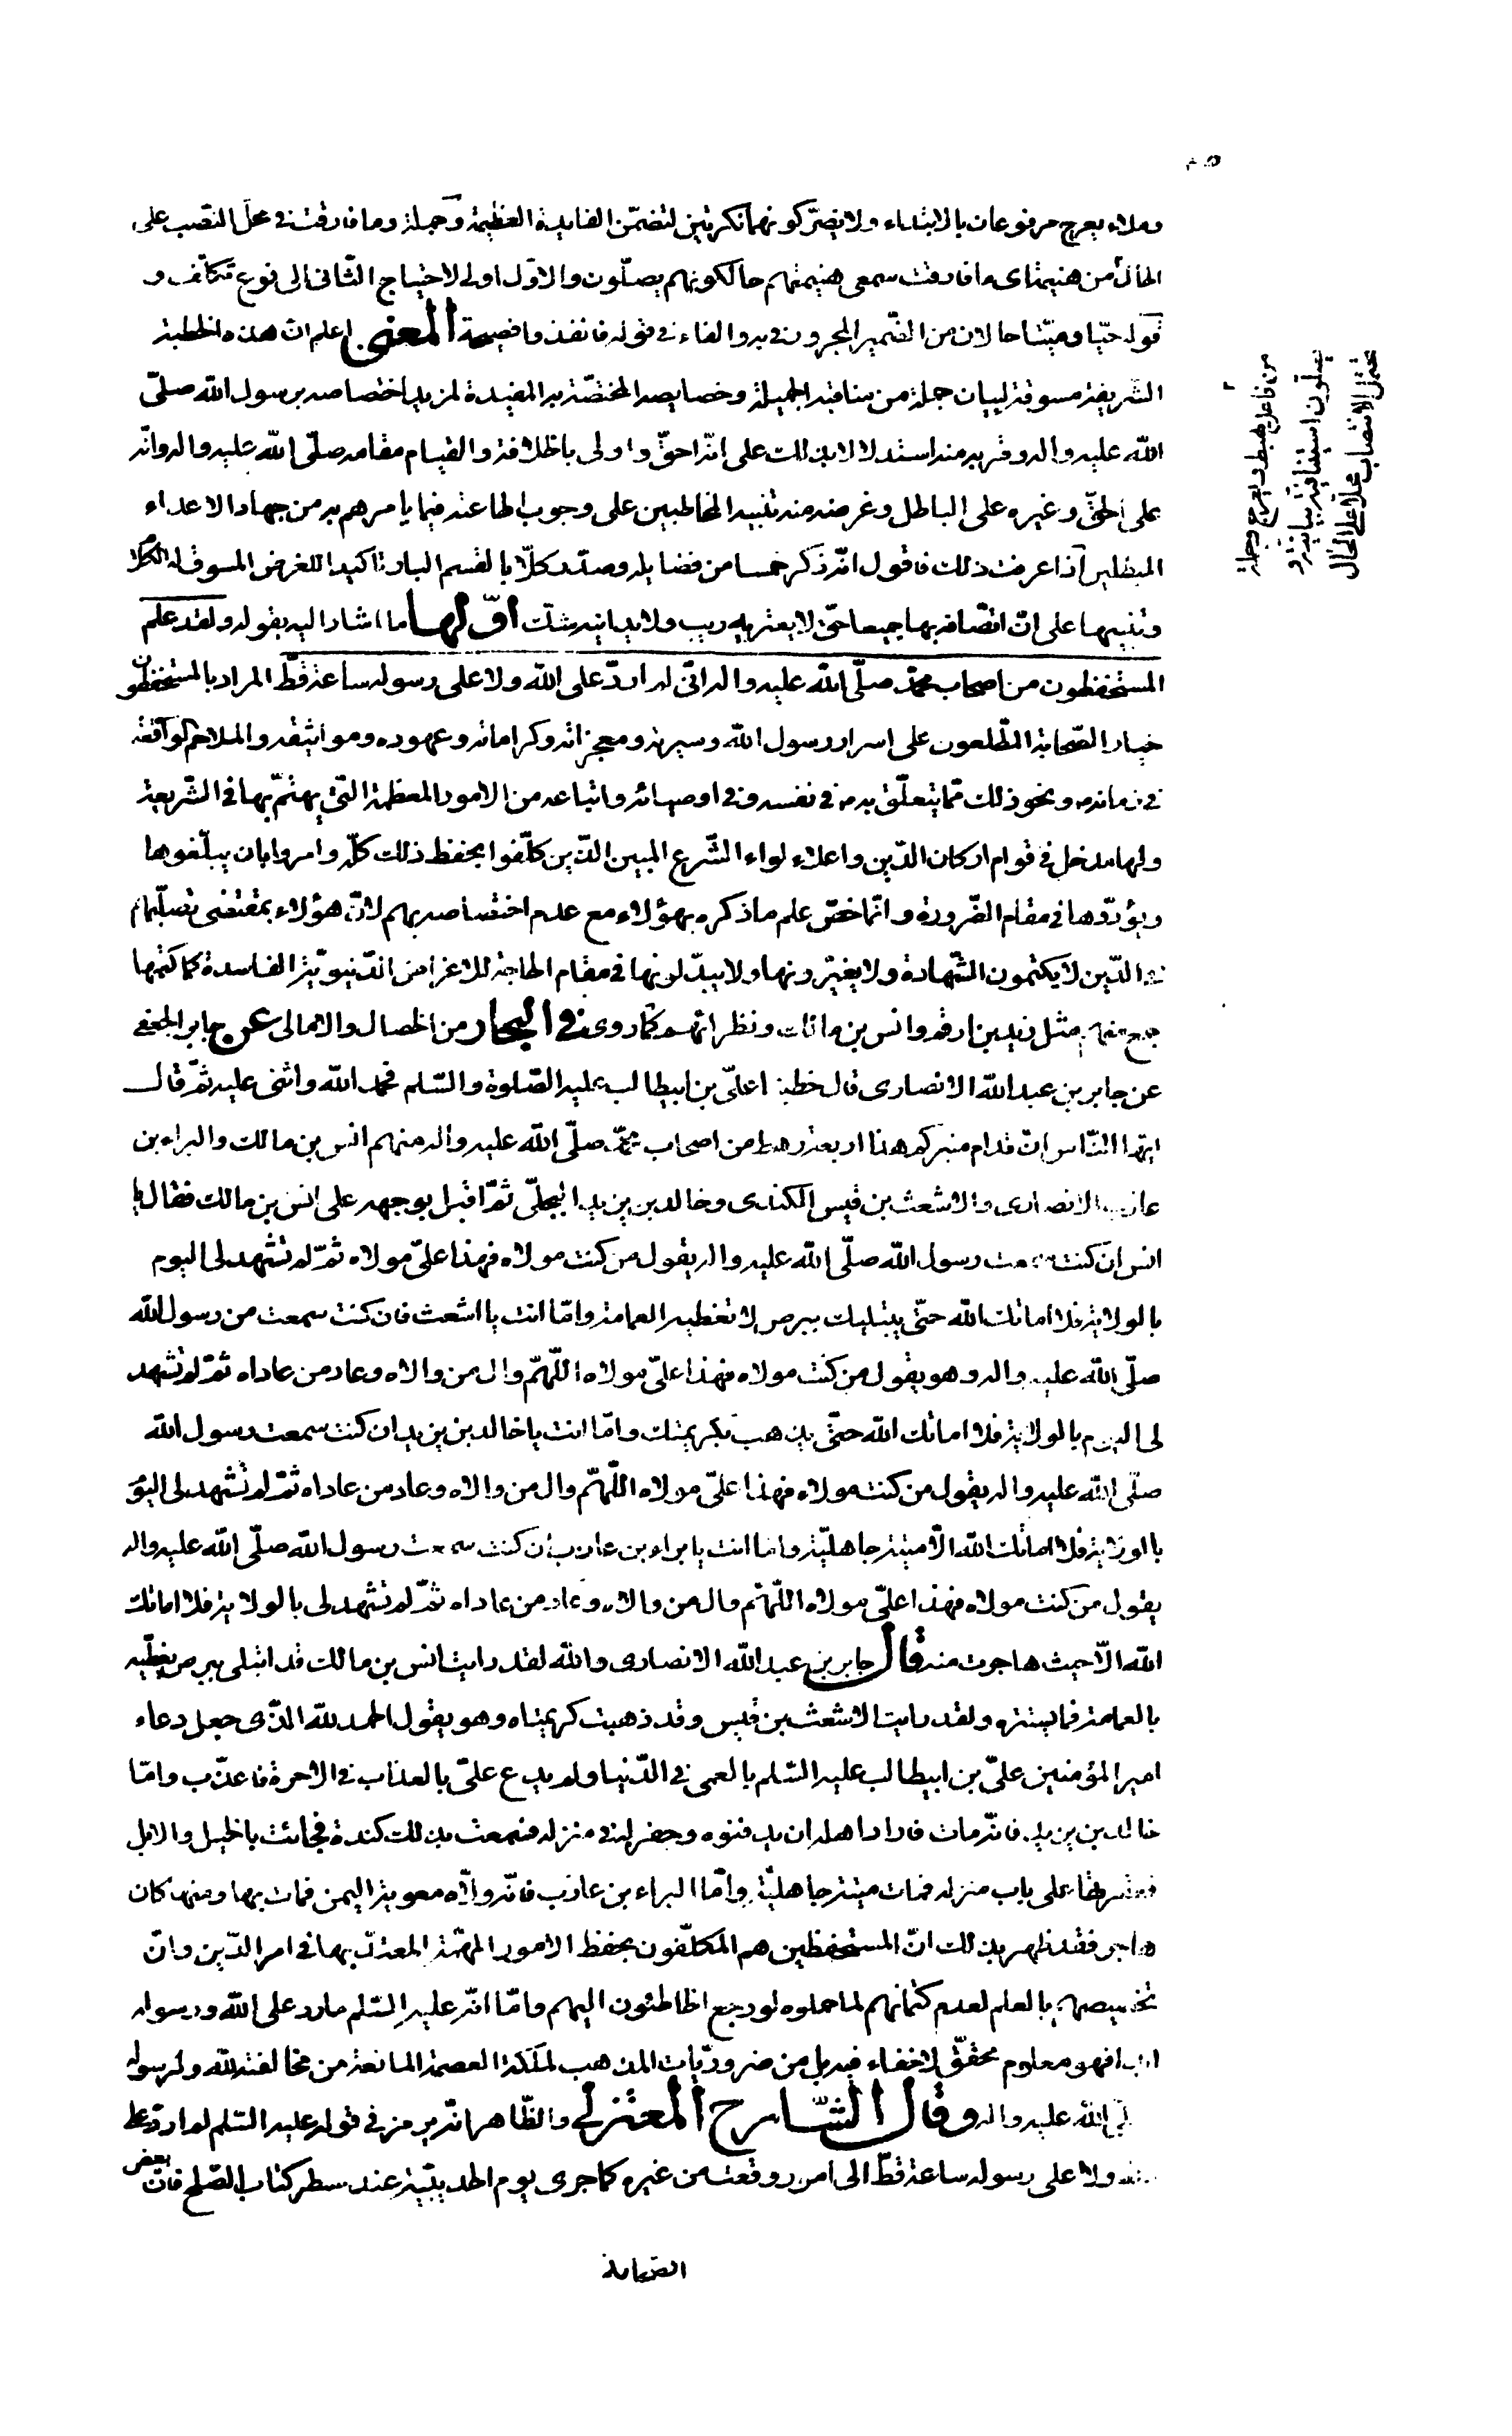 وملاء يعرج مرفوعان بالابتداء ولا يضرّ كونهما نكرتين لتضمّن الفايدة العظيمة وجملة وما فارقت في محلّ النّصب على
الحال من هنيمة اى ما فارقت سمعى هنيمتهم حالكونهم يصلّون والاوّل اولى لاحتياج الثّانى الى نوع تكلّف و
قوله حيّا وميّتا حالان من الضّمير المجرور في به والفاء في قوله فانفذوا فصيحة المعنى اعلم انّ هذه الخطبة
الشّريفة مسوقة لبيان جملة من مناقبه الجميلة وخصايصه المختصّة به المفيدة لمزيد اختصاصه برسول الله صلّى
الله عليه واله وقربه منه استدلالا بذلك على انّه احقّ واولى بالخلافة والقيام مقامه صلّى الله عليه واله وانّه
على الحقّ وغيره على الباطل وغرضه منه تنبيه المخاطبين على وجوب اطاعته فيما يامرهم به من جهاد الاعداء
المبطلين اذا عرفت ذلك فاقول انّه ذكر خمسا من فضايله وصدّر كلّا بالقسم البارّ تاكيدا للغرض المسوق له الكلام
وتنبيها على انّ اتّصافه بها جميعا حقّ لا يعتريه ريب ولا يدانيه شكّ اوّلها ما اشار اليه بقوله ولقد علم
المستحفظون من اصحاب محمّد صلّى الله عليه واله انّى لم اردّ على الله ولا على رسوله ساعة قطّ المراد بالمستحفظون
خيار الصّحابة المطّلعون على اسرار رسول الله وسيرته ومعجزاته وكراماته وعهوده ومواثيقه والملاحم الواقعة
في زمانه ونحو ذلك ممّا يتعلّق به في نفسه وفي اوصيائه واتباعه من الامور المعظمة الّتى يهتمّ بها في الشّريعة
ولها مدخل في قوام اركان الدّين واعلاء لواء الشّرع المبين الّذين كلّفوا بحفظ ذلك كلّه وامروا بان يبلّغوها
ويؤدّوها في مقام الضّرورة وانّما خصّ علم ما ذكره بهؤلاء مع عدم اختصاصه بهم لانّ هؤلاء بمقتضى تصلّبهم
في الدّين لا يكتمون الشّهادة ولا يغيّرونها ولا يبدّلونها في مقام الحاجة للاغراض الدّنيويّة الفاسدة كما كتمها
جمع منهم مثل زيد بن ارقم وانس بن مالك ونظرائهم كما روى في البحار من الخصال والامالى عن جابر الجعفى
عن جابر بن عبد الله الانصارى قال خطبنا علىّ بن ابيطالب عليه الصّلوة والسّلم فحمد الله واثنى عليه ثمّ قال
ايّها النّاس انّ قدام منبركم هذا اربعة رهط من اصحاب محمّد صلّى الله عليه واله منهم انس بن مالك والبراء بن
عازب الانصارى والاشعث بن قيس الكندى وخالد بن يزيد البجلّى ثمّ اقبل بوجهه على انس بن مالك فقال يا
انس ان كنت سمعت رسول الله صلّى الله عليه واله يقول من كنت مولاه فهذا علىّ مولاه ثمّ لم تشهد لى اليوم
بالولاية فلا اماتك الله حتّى يبتليك ببرص لا تغطيه العمامة وامّا انت يا اشعث فان كنت سمعت من رسول الله
صلّى الله عليه واله وهو يقول من كنت مولاه فهذا علىّ مولاه اللّهمّ وال من والاه وعاد من عاداه ثمّ لم تشهد
لى اليوم بالولاية فلا اماتك الله حتّى يذهب بكريمتيك وامّا انت يا خالد بن يزيد ان كنت سمعت رسول الله
صلّى الله عليه واله يقول من كنت مولاه فهذا علىّ مولاه اللّهمّ وال من والاه وعاد من عاداه ثمّ لم تشهد لى اليوم
بالولاية فلا اماتك الله الّا ميتة جاهليّة وامّا انت يا براء بن عازب ان كنت سمعت رسول الله صلّى الله عليه واله
يقول من كنت مولاه فهذا علىّ مولاه اللّهمّ وال من والاه وعاد من عاداه ثمّ لم تشهد لى بالولاية فلا اماتك
الله الّا حيث هاجرت منه قال جابر بن عبد الله الانصارى والله لقد رايت انس بن مالك قد ابتلى ببرص يغطّيه
بالعمامة فما يستره ولقد رايت الاشعث بن قيس وقد ذهبت كريمتاه وهو يقول الحمد لله الّذى جعل دعاء
امير المؤمنين علىّ بن ابيطالب عليه السّلم بالعمى في الدّنيا ولم يدع علىّ بالعذاب في الاخرة فاعذّب وامّا
خالد بن يزيد فانّه مات فاراد اهله ان يدفنوه وحفر له في منزله فسمعت بذلك كندة فجائت بالخيل والابل
فعقرتها على باب منزله فمات ميتة جاهليّة وامّا البراء بن عازب فانّه ولّاه معوية اليمن فمات بها ومنها كان
هاجر فقد ظهر بذلك انّ المستحفظين هم المكلّفون بحفظ الامور المهمّة المعتدّ بها في امر الدّين وانّ
تخصيصهم بالعلم لعدم كتمانهم لما حملوه لو رجع الخاطئون اليهم وامّا انّه عليه السّلم ما ردّ على الله ورسوله
ابدا فهو معلوم محقّق لا خفاء فيه بل من ضروريّات المذهب لملكة العصمة المانعة من مخالفته لله ولرسوله
صلّى الله عليه واله وقال الشّارح المعتزلى والظّاهر انّه يرمز في قوله عليه السّلم لم اردّ على
الله ولا على رسوله ساعة قطّ الى امور وقعت من غيره كما جرى يوم الحديبيّة عند سطر كتاب الصّلح فانّ بعض
الصّحابة
من فاعل يهبط ويعرج وجملة
يصلّون استينافيّة بيانيّة و
يحتمل الانتصاب محلّا على الحال